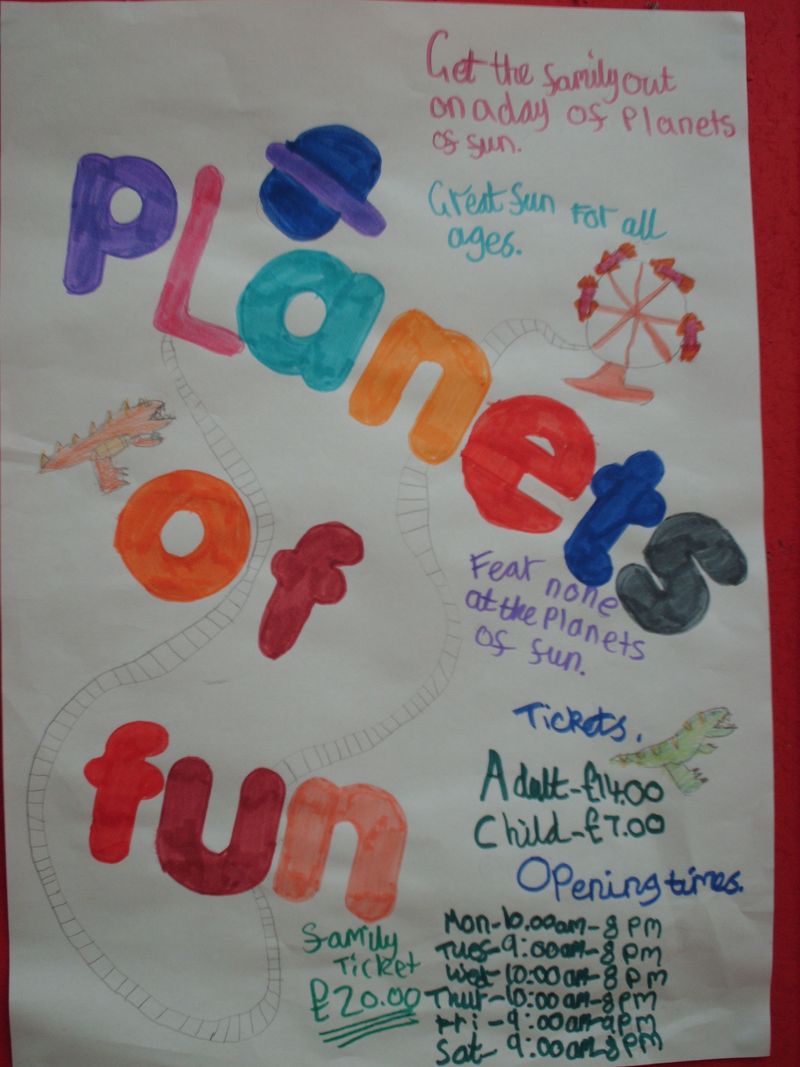 Get the family out
on a day of Planets
of fun.
Great fun For all
ages.
PLanets
of
fun
Fear none
at the Planets
of fun.
Tickets.
Adult-£14.00
Child-£7.00
Opening times.
Mon-10.00am-8 PM
Tues-9:00am-8 PM
Wed-10:00am-8 PM
Thur-10:00am-8PM
Fri-9:00am-9PM
Sat-9:00am-8PM
family
Ticket
£20.00